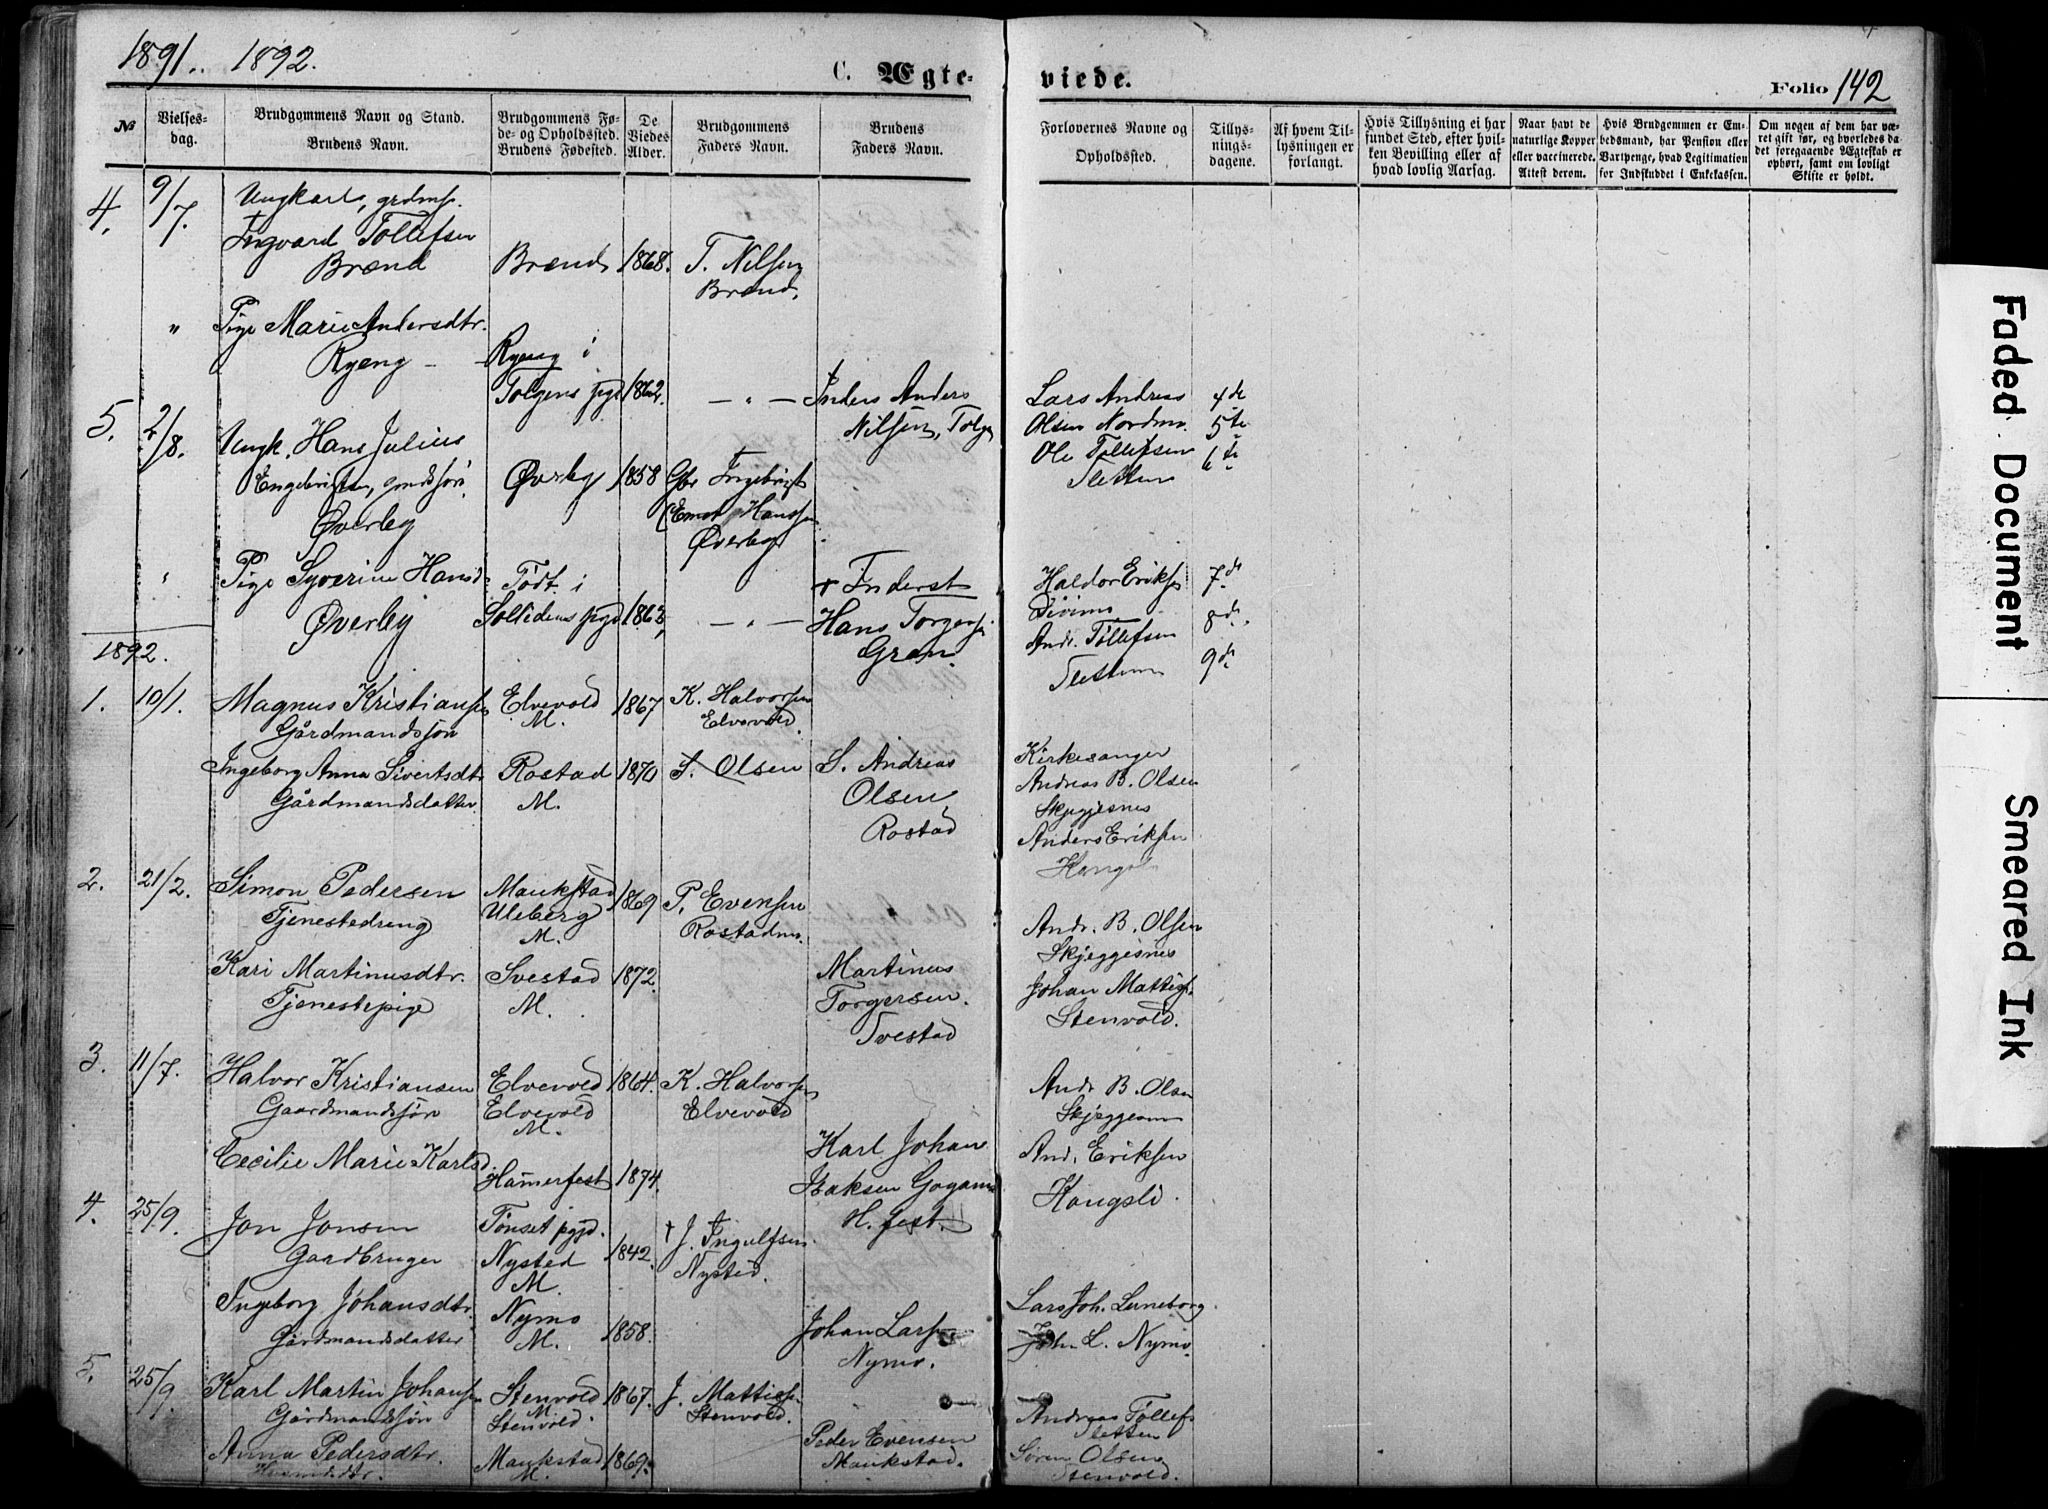 1891. 1892.
C. Ægte-
viede.
Folio 142
№
Vielses-
dag.
Brudgommens Navn og Stand.
Brudens Navn.
Brudgommens Fø-
de- og Opholdssted.
Brudens Fødested.
De
Viedes
Alder.
Brudgommens
Faders Navn.
Brudens
Faders Navn.
Forlovernes Navne og
Opholdssted.
Tillys-
nings-
dagene.
Af hvem Til-
lysningen er
forlangt.
Hvis Tillysning ei har
fundet Sted, efter hvil-
ken Bevilling eller af
hvad lovlig Aarsag.
Naar havt de
naturlige Kopper
eller vaccinerede.
Attest derom.
Hvis Brudgommen er Em-
bedsmand, har Pension eller
Vartpenge, hvad Legitimation
for Indskuddet i Enkekassen.
Om nogen af dem har væ-
ret gift før, og hvorledes da
det foregaaende Ægteskab er
ophørt, samt om lovligt
Skifte er holdt.
4. 9/7. Ungkarl, grdms.
Ingvard Tollefsen
Brænd
Brænd 1868. T. Nilsen
Brænd.
" Pige Marie Andersdtr.
Ryeng -
Ryeng i
Tolgens pgd 1862. - " - Inders Anders
Nilsen, Tolgen
Lars Andreas
Olsen Nordmo.
Ole Tollefsen
Sletten
4de
5te
6te
5. 2/8. Ungk. Hans Julius
Engebrigtsen, gmdssøn
Øverby
Øverby 1858 Gbr Ingebrigt
Hansen
Øverby
" Pige Syverine Hansd.
Øverby
Født i
Sollidens pgd 1863, - " - + Inderst
Hans Torgersen
Gran.
Haldor Eriksen
Divimo
Andr. Tollefsen
Sletten
7de
8de.
9de
1892.
1. 10/1. Magnus Kristiansen
Gårdmandssøn
Elvevold
M.
1867 K. Halvorsen
Elvevold.
Ingeborg Anna Sivertsdtr
Gårdmandsdatter
Rostad
M.
1870 S. Olsen S. Andreas
Olsen
Rostad
Kirkesanger
Andreas B. Olsen
Skjeggesnes
Anders Eriksen
Kongsli
2. 21/2. Simon Pedersen
Tjenestedreng
Maukstad
Uleberg
M.
1869 P. Evensen
Rostadmo.
Kari Martinusdtr.
Tjenestepige
Svestad
M.
1872. Martinus
Torgersen.
Svestad
Andr. B. Olsen
Skjeggesnes
Johan Mattis.
Stenvold.
3. 11/7. Halvor Kristiansen
Gaardmandssøn
Elvevold
Elvevold
M.
1864. K. Halvorsen
Elvevold
Cecilie Marie Karlsd.
Hamerfest 1874. Karl Johan
Isaksen
H.fest.
Andr B. Olsen
Skjeggesnes
And. Eriksen
Kongsli.
4. 25/9. Jon Jonsen
Gaardbruger
Tønset pgjd.
Nysted
M.
1842. + J. Ingulfsen.
Nysted.
Ingeborg Johansdtr.
Gårdmandsdatter
Nymo
M.
1858. Johan Larsen
Nymo.
Lars Joh. Lerneborg.
John L. Nymo.
5. 25/9. Karl Martin Johansen
Gårdmandssøn
Stenvold
M.
Stenvold.
1867. J. Mattisen.
Stenvold.
Anna Pedersdtr.
Maukstad
M.
1869. Peder Evensen
Maukstad.
Andreas Tollefs
Sletten
Søren Olsen
Stenvold.
Faded Document
Smeared Ink